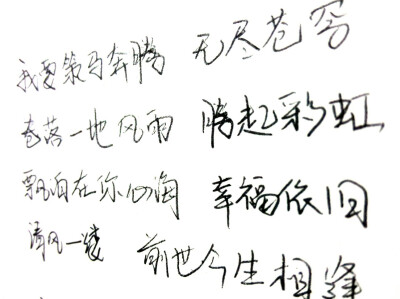 我要策马奔腾 无尽苍穹
卷落一地风雨 腾起彩虹
飘泊在你心海 幸福依旧
清风一缕 前世今生相逢